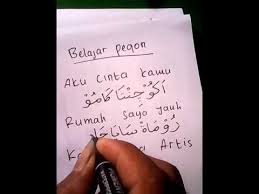 Belajar peqon
Aku cinta kamu
اَكُوْ جِنْتَا كَامُوْ
Rumah saya jauh
رُوْمَاهْ سَايَا
Artis